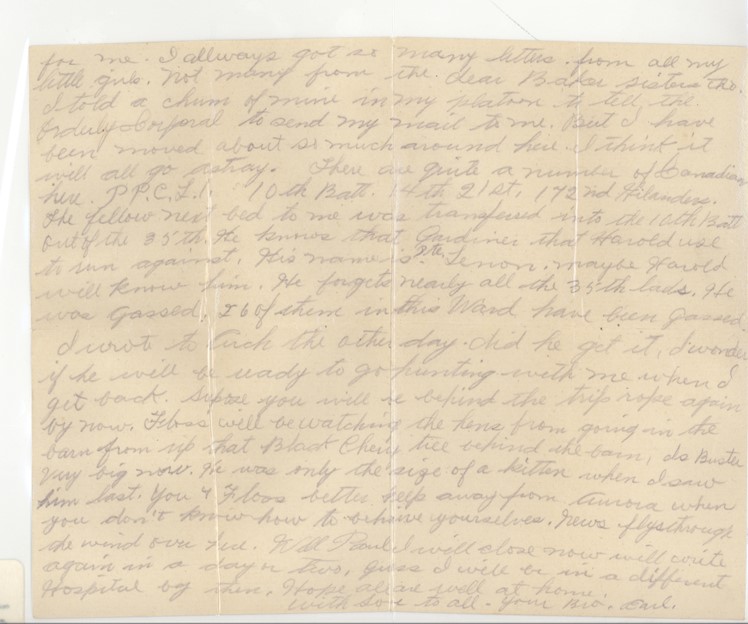 for me. I allways got so many letters from all my
little girls. Not many from the dear Baker sisters tho.
I told a chum of mine in my platoon to tell the
Orderly=Corporal to send my mail to me. But I have
been moved about so much around here. I think it
will all go astray. There are quite a number of Canadian
here. P.P.C.L.I. 10th Batt. 14th 21st, 172nd Hilanders.
The fellow next bed to me was transfered into the 10th Batt
out of the 35th. He knows that Gardiner that Harold use
to run against. His name is Pte. Lenon. maybe Harold
will know him. He forgets nearly all the 35th lads. He
was Gassed. 26 of them in this Ward have been gassed.
I wrote to the other day. did he get it, I wonder
if he will be ready to go hunting with me when I
get back. Supose you will be behind the trip rope again
by now. Floss will be watching the hens from going in the
barn from up that Black Chery tree behind the barn, Is Buster
very big now. He was only the size of a kitten when I saw
him last. You & Floss better keep away from Aurora when
you don't know how to behave yourselves. News flys through
the wind over here. Well Paul I will close now will write
again in a day or two, guess I will be in a different
Hospital by then. Hope all are well at home.
with love to all. Your Bro. Earl.